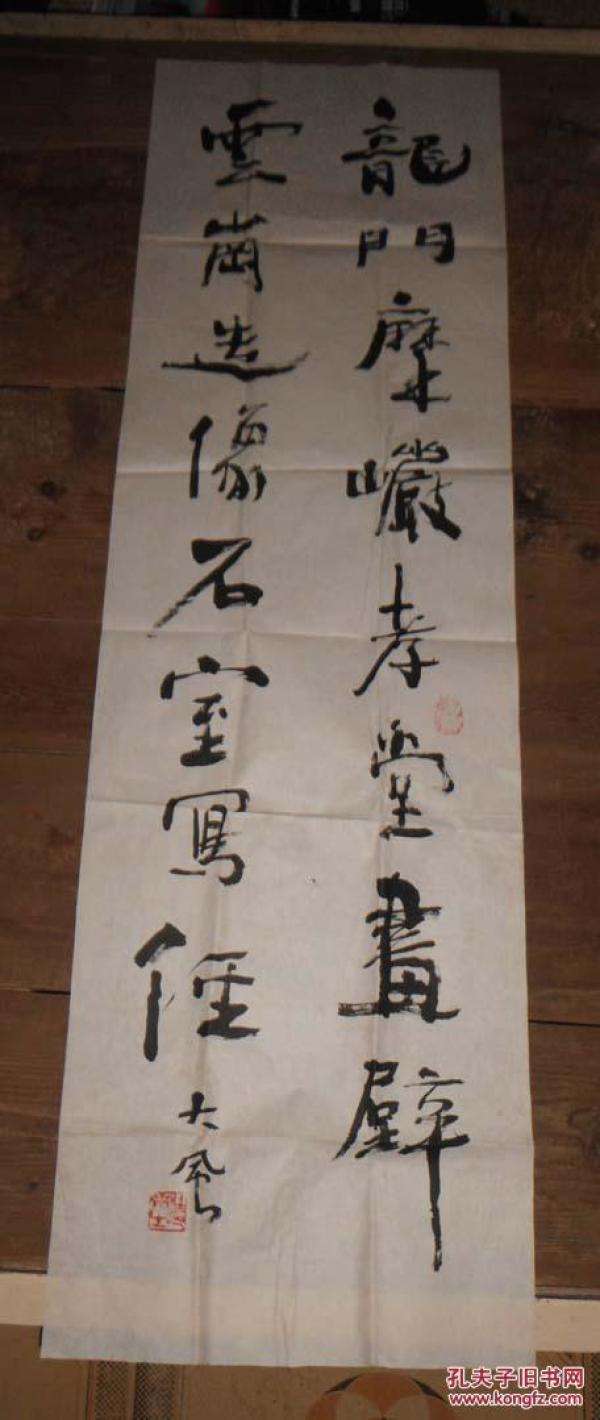 龍門摩巖孝堂畫壁
雲崗造像石室寫經
大風
孔夫子旧书网
www.kongfz.com